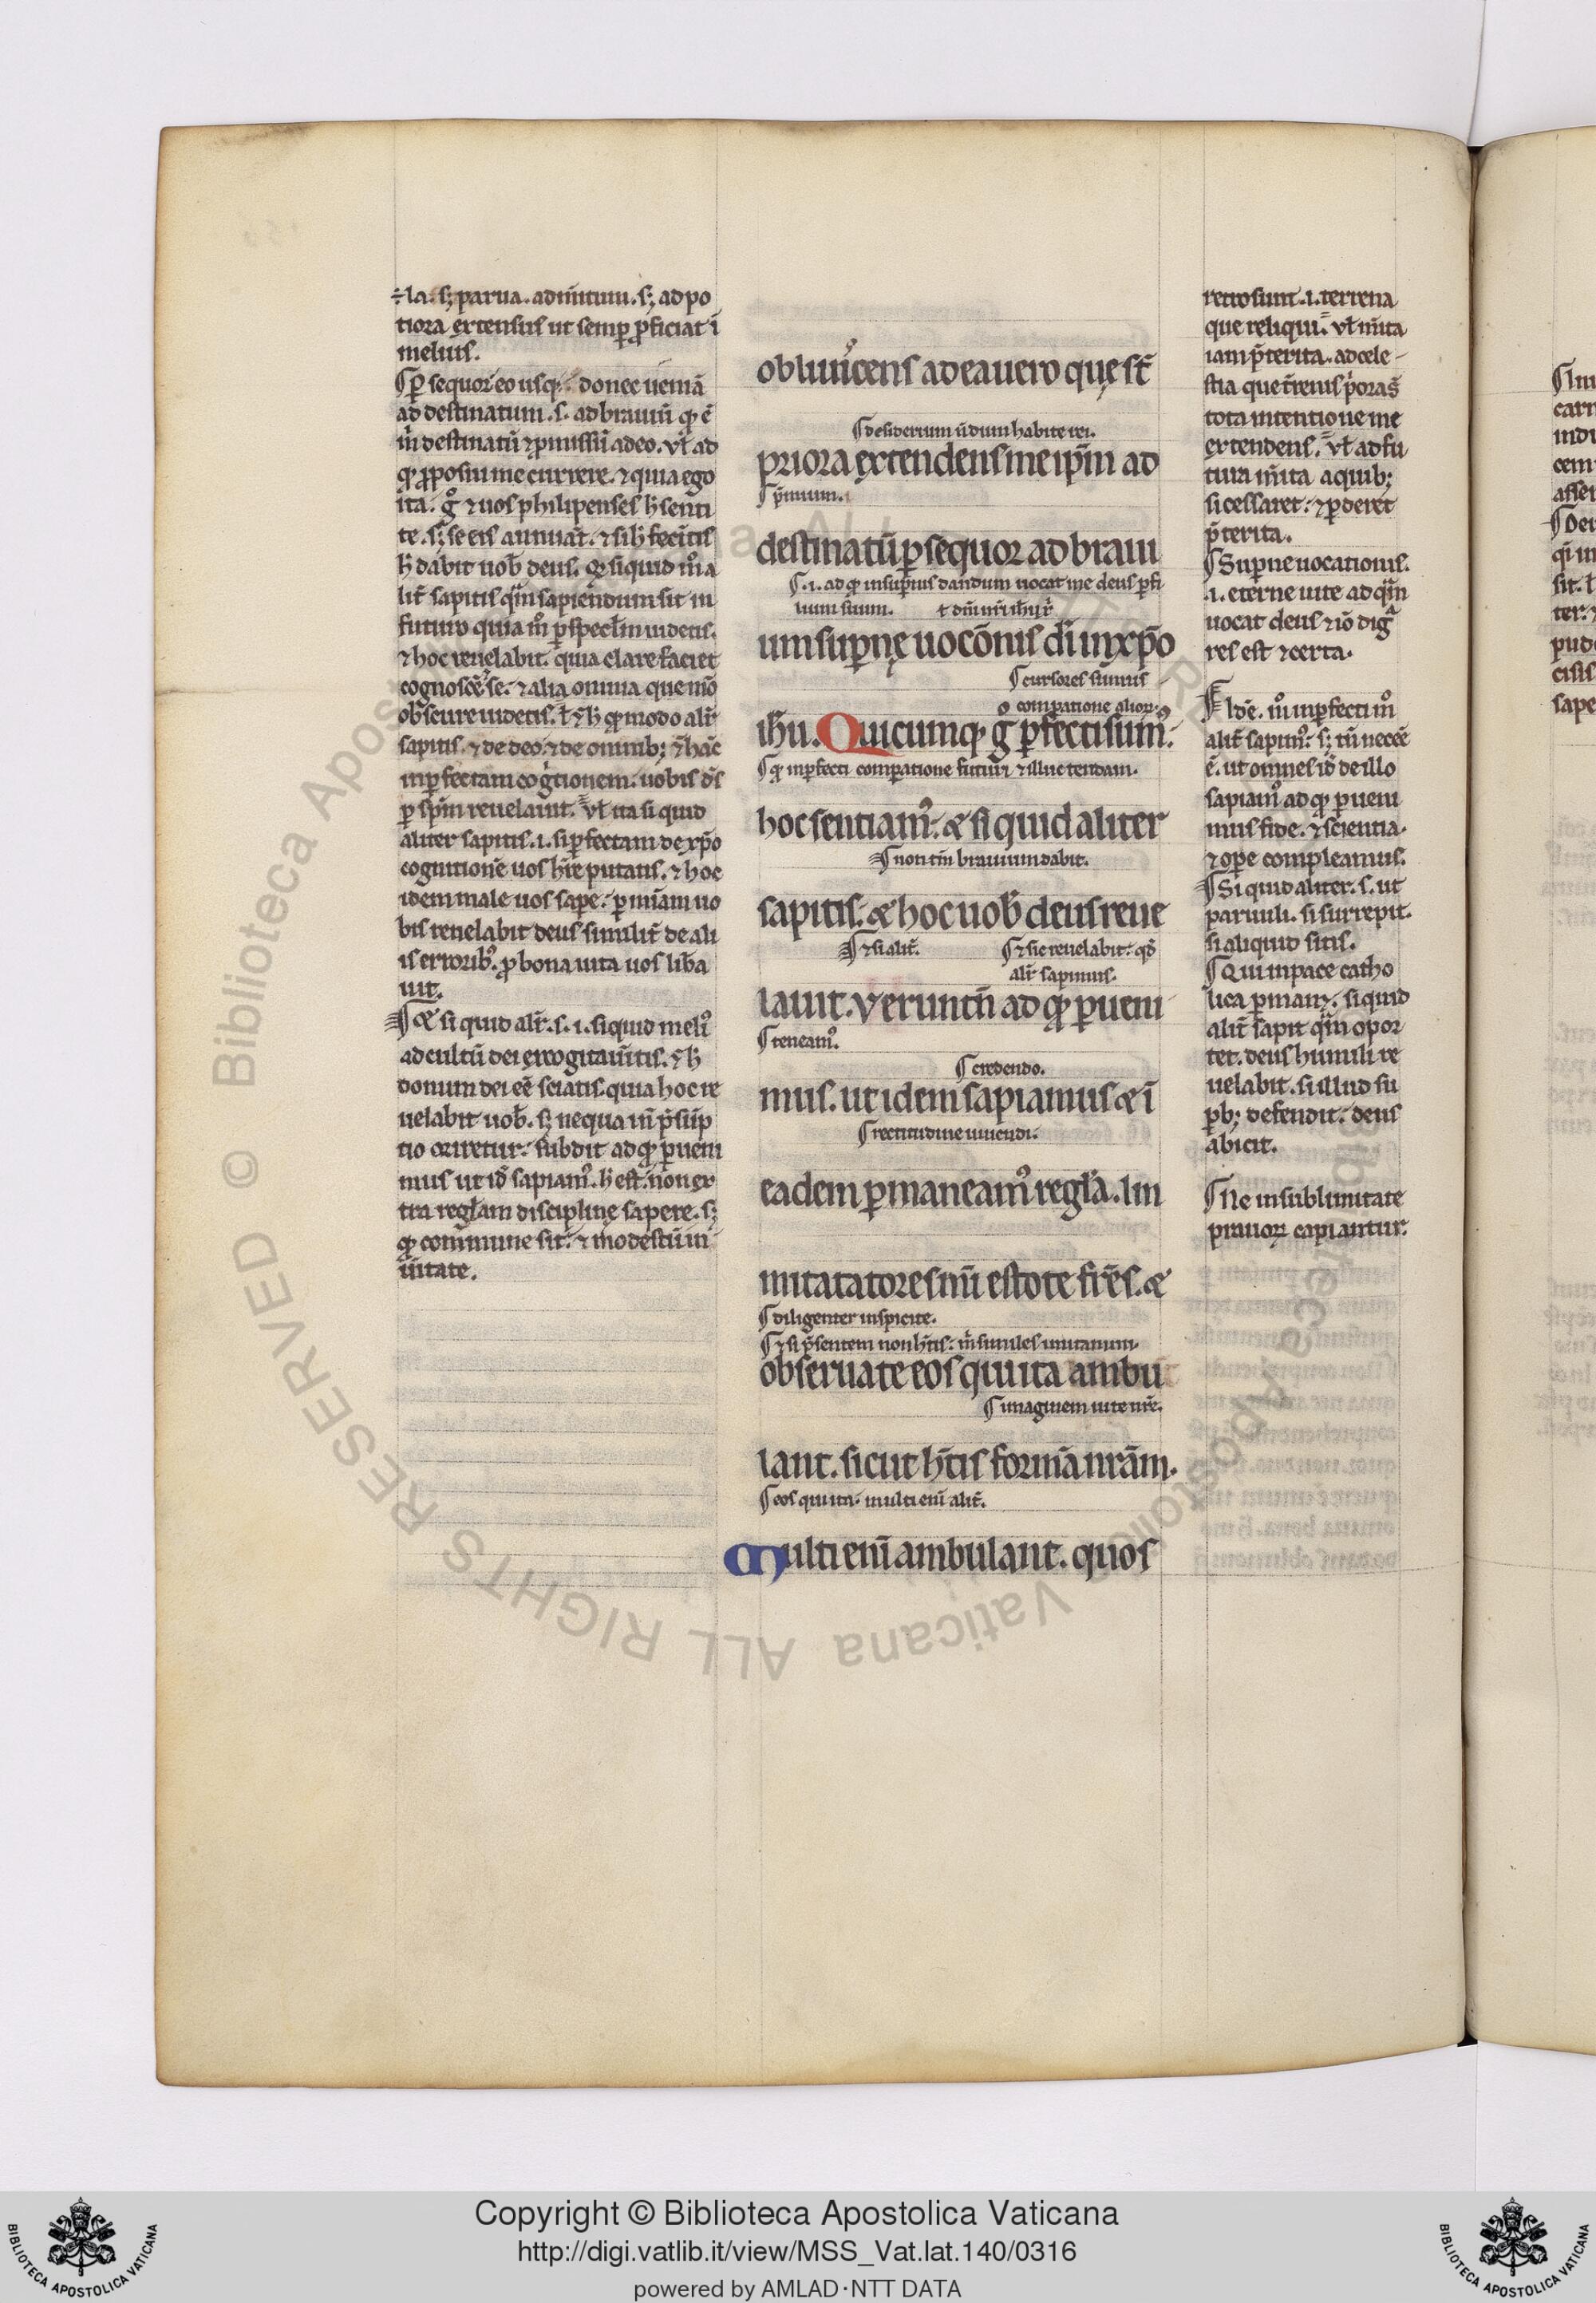 ÷la. sꝫ parua. ad meritum. sꝫ ad po
tiora extensus ut semp̲ ꝓficiat ī
melius.
¶ P̲sequor eo usqꝫ donec ueniā
ad destinatum. s. ad brauiū qd̓ ē
m̓ destinatū ⁊ ꝓmissū a deo. uł ad
qd̓ ꝓposui me currere. ⁊ quia ego
ita. gͦ ⁊ uos philipenses h̓ senti
te.
h̓ dabit nob̓ deus. si quid m̊ a
lit̓ sapitis qͣm sapiendum sit in
futuro quia m̊ p̲ specłm uidetis.
⁊ hoc reuelabit. quia clare faciet
cognoscē se. ⁊ alia omnia que m̊o
obscure uidetis. qd̓ modo alit̓
sapitis. ⁊ de deo. ⁊ de omnibꝫ
inp̲fectam cognitionem. uobis ds̄
p̲ spm̄ reuelauit. uł ita si quid
aliter sapitis. i. si p̲fectam de xp̄o
cognitionē uos hr̄e putatis. ⁊ hoc
idem male uos sape. p̲ m̄iam uo
bis reuelabit deus similit̓ de ali
is erroribꝰ. ꝓ bona uita uos lib̓a
uit.
¶ & si quid alit̓. s. i. si quid meliꝰ
ad cultū dei excogitauitis. h̓
donum dei eē sciatis. quia hoc re
uelabit uob̓. sꝫ nequa in p̄sūp
tio oriretur. subdit ad qd̓ p̲ueni
mus ut id̓ sapiamꝰ. h̓ est. non ex
tra regłam discipline̜ sapere. sꝫ
qd̓ commune sit. ⁊ modestū in
ūitate.
obliuiscens ad ea uero que̜ st̄
¶ desiderium nōdum habite rei.
priora extendens me ipm̄ ad
¶ p̄mium.
destinatū p̲sequor ad braui
¶ .i. ad qd̓ in sup̲nis dandum uocat me deus p̲ fi
lium suum. ł dn̄m nr̄m ih̄m xp̄
um sup̲ne̜ uocōnis di̅ in xp̄o
¶ cursores sumus
compatione alioꝝ.
ih̄u. Quicumqꝫ g̓ p̲fecti sum̓.
¶ qd̓ inp̲fecti compatione futuri ⁊ illuc tendam.
hoc sentiamꝰ. & si quid aliter
¶ non tm̄ brauium dabit.
sapitis. & hoc uob̓ deus reue
¶ ⁊ si alit̓. ¶ ⁊ sic reuelabit. qd̓
alit̓ sapimus.
lauit. Veruntn̄ ad qd̓ p̲ueni
¶ teneamꝰ.
¶ credendo.
mus. ut idem sapiamus & ī
¶ rectitudine uiuendi.
eadem p̲maneamꝰ regła. Im
mitatatores mī estote fr̄es. &
¶ diligenter inspicite.
¶ ⁊ si p̄sentem non h̄tis. m̓ similes imitamini.
obseruate eos qui ita ambu
¶ imaginem uite nr̄e.
lant. sicut h̄tis formā nrām.
¶ eos qui ita. multi enī alit̓.
Multi enī ambulant. quos
retro sunt. i. terrena
que reliqui. uł m̄ita
iam p̄terita. ad cele
stia
tota intentione me
extendens. uł ad fu
tura m̄ita a quibꝫ
si cessaret. ⁊ p̲deret
p̄terita.
¶ Sup̲ne uocationis.
.i. eterne uite ad qͣm
uocat deus ⁊ iō dig̓
res est ⁊ certa.
alit̓ sapimꝰ. sꝫ tn̄ necee̅
ē. ut omnes id̓ de illo
sapiamꝰ ad qd̓ p̲ueni
mus fide. ⁊ scientia.
⁊ ope compleamus.
¶ Si quid aliter. s. ut
paruuli. si surrepit.
si aliquid sitis.
¶ Qui in pace catho
lica p̲manꝫ. si quid
alit̓ sapit qͣm opor
tet. deus humili re
uelabit. si illud su
p̲bꝫ defendit. deus
abicit.
¶ Ne in sublimitate
prauoꝝ capiantur.
Copyright © Biblioteca Apostolica Vaticana
http://digi.vatlib.it/view/MSS_Vat.lat.140/0316
powered by AMLAD·NTT DATA
BIBLIOTECA APOSTOLICA VATICANA
BIBLIOTECA APOSTOLICA VATICANA
© Biblioteca Apostolica Vaticana ALL RIGHTS RESERVED